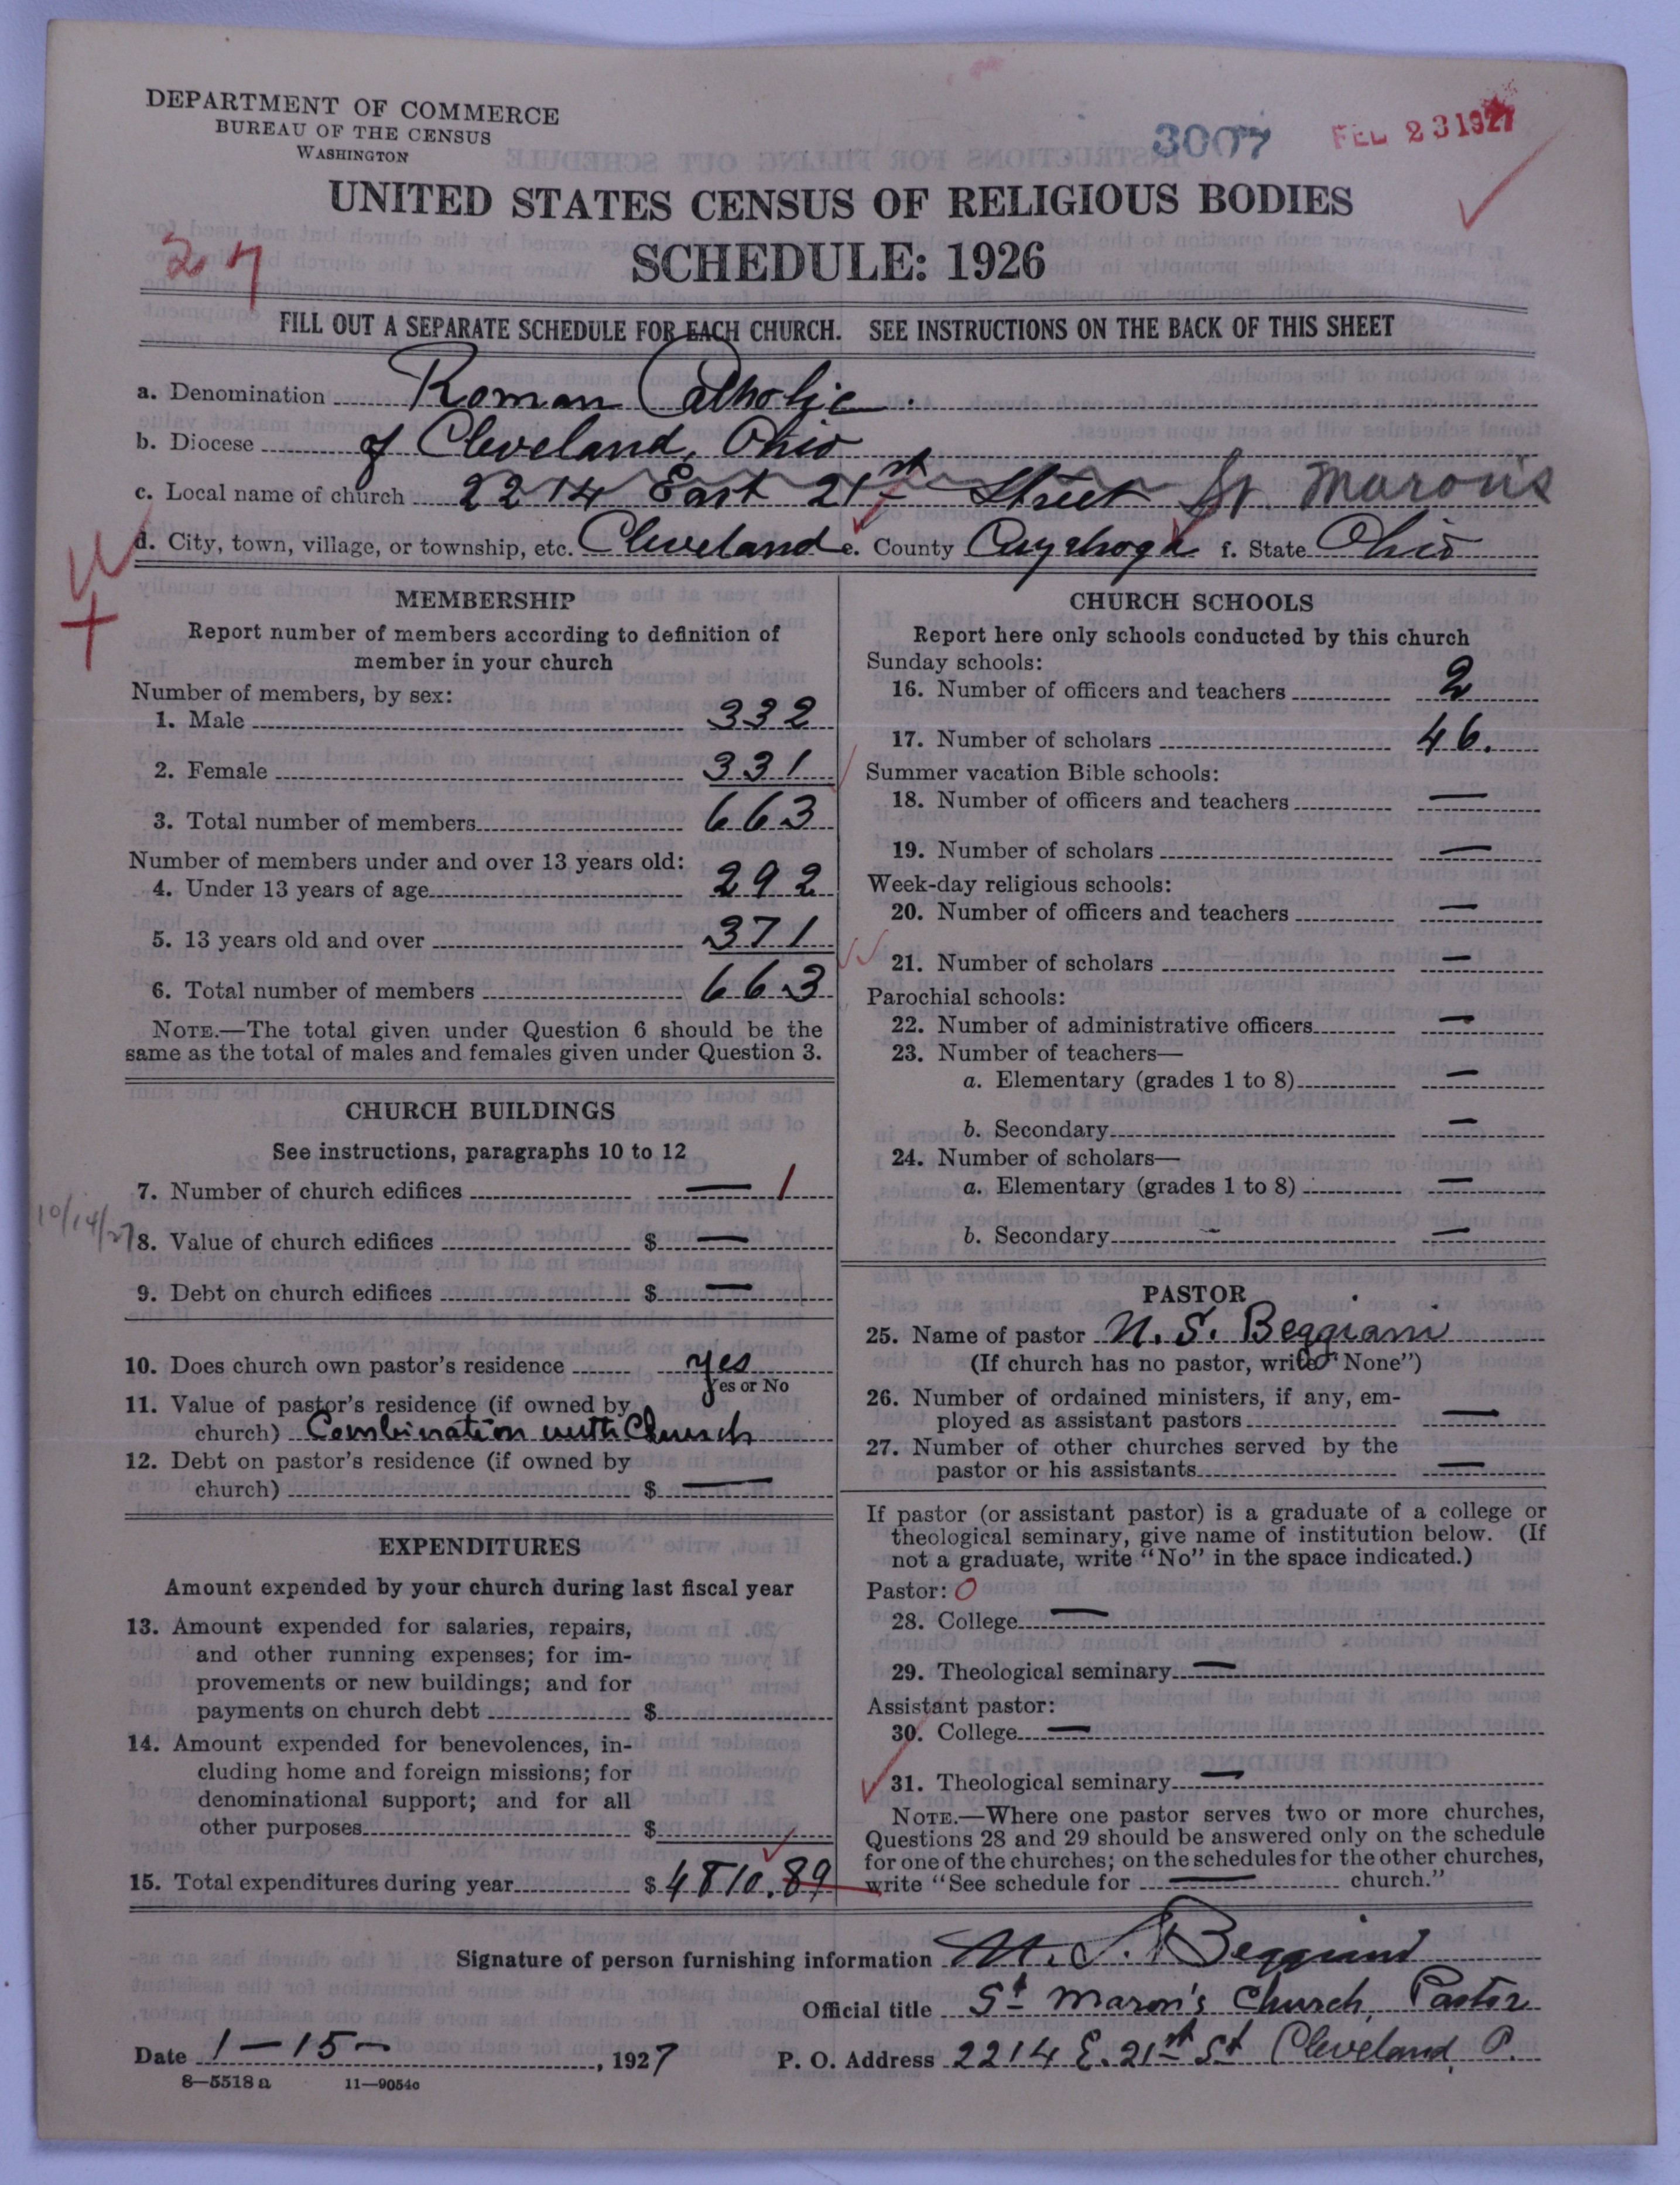 DEPARTMENT OF COMMERCE
BUREAU OF THE CENSUS
WASHINGTON
3007
FEB 23 1927
UNITED STATES CENSUS OF RELIGIOUS BODIES
SCHEDULE: 1926
27
FILL OUT A SEPARATE SCHEDULE FOR EACH CHURCH. SEE INSTRUCTIONS ON THE BACK OF THIS SHEET
a. Denomination Roman Catholic.
b. Diocese of Cleveland, Ohio
c. Local name of church 2214 East 21st Street St. Maron's
d. City, town, village, or township, etc. Cleveland e. County Cuyahoga f. State Ohio
MEMBERSHIP
Report number of members according to definition of
member in your church
Number of members, by sex:
1. Male 332
2. Female 331
3. Total number of members 663
Number of members under and over 13 years old:
4. Under 13 years of age 292
5. 13 years old and over 371
6. Total number of members 663
NOTE.—The total given under Question 6 should be the
same as the total of males and females given under Question 3.
CHURCH BUILDINGS
See instructions, paragraphs 10 to 12
7. Number of church edifices — 1
10/14/27
8. Value of church edifices $ —
9. Debt on church edifices $ —
10. Does church own pastor's residence yes
Yes or No
11. Value of pastor's residence (if owned by
church) Combination with Church
12. Debt on pastor's residence (if owned by
church) $ —
EXPENDITURES
Amount expended by your church during last fiscal year
13. Amount expended for salaries, repairs,
and other running expenses; for im-
provements or new buildings; and for
payments on church debt $
14. Amount expended for benevolences, in-
cluding home and foreign missions; for
denominational support; and for all
other purposes $
15. Total expenditures during year $ 4810.89
CHURCH SCHOOLS
Report here only schools conducted by this church
Sunday schools:
16. Number of officers and teachers 2
17. Number of scholars 46.
Summer vacation Bible schools:
18. Number of officers and teachers —
19. Number of scholars —
Week-day religious schools:
20. Number of officers and teachers —
21. Number of scholars —
Parochial schools:
22. Number of administrative officers —
23. Number of teachers—
a. Elementary (grades 1 to 8) —
b. Secondary —
24. Number of scholars—
a. Elementary (grades 1 to 8) —
b. Secondary —
PASTOR
25. Name of pastor N. S. Beggiani
(If church has no pastor, write "None")
26. Number of ordained ministers, if any, em-
ployed as assistant pastors —
27. Number of other churches served by the
pastor or his assistants —
If pastor (or assistant pastor) is a graduate of a college or
theological seminary, give name of institution below. (If
not a graduate, write "No" in the space indicated.)
Pastor: O
28. College —
29. Theological seminary —
Assistant pastor:
30. College —
31. Theological seminary —
NOTE.—Where one pastor serves two or more churches,
Questions 28 and 29 should be answered only on the schedule
for one of the churches; on the schedules for the other churches,
write "See schedule for — church."
Signature of person furnishing information N. S. Beggiani
Official title St Maron's Church, Pastor
Date 1-15-, 1927 P. O. Address 2214 E. 21st St Cleveland, O.
8—5518 a 11—9054c